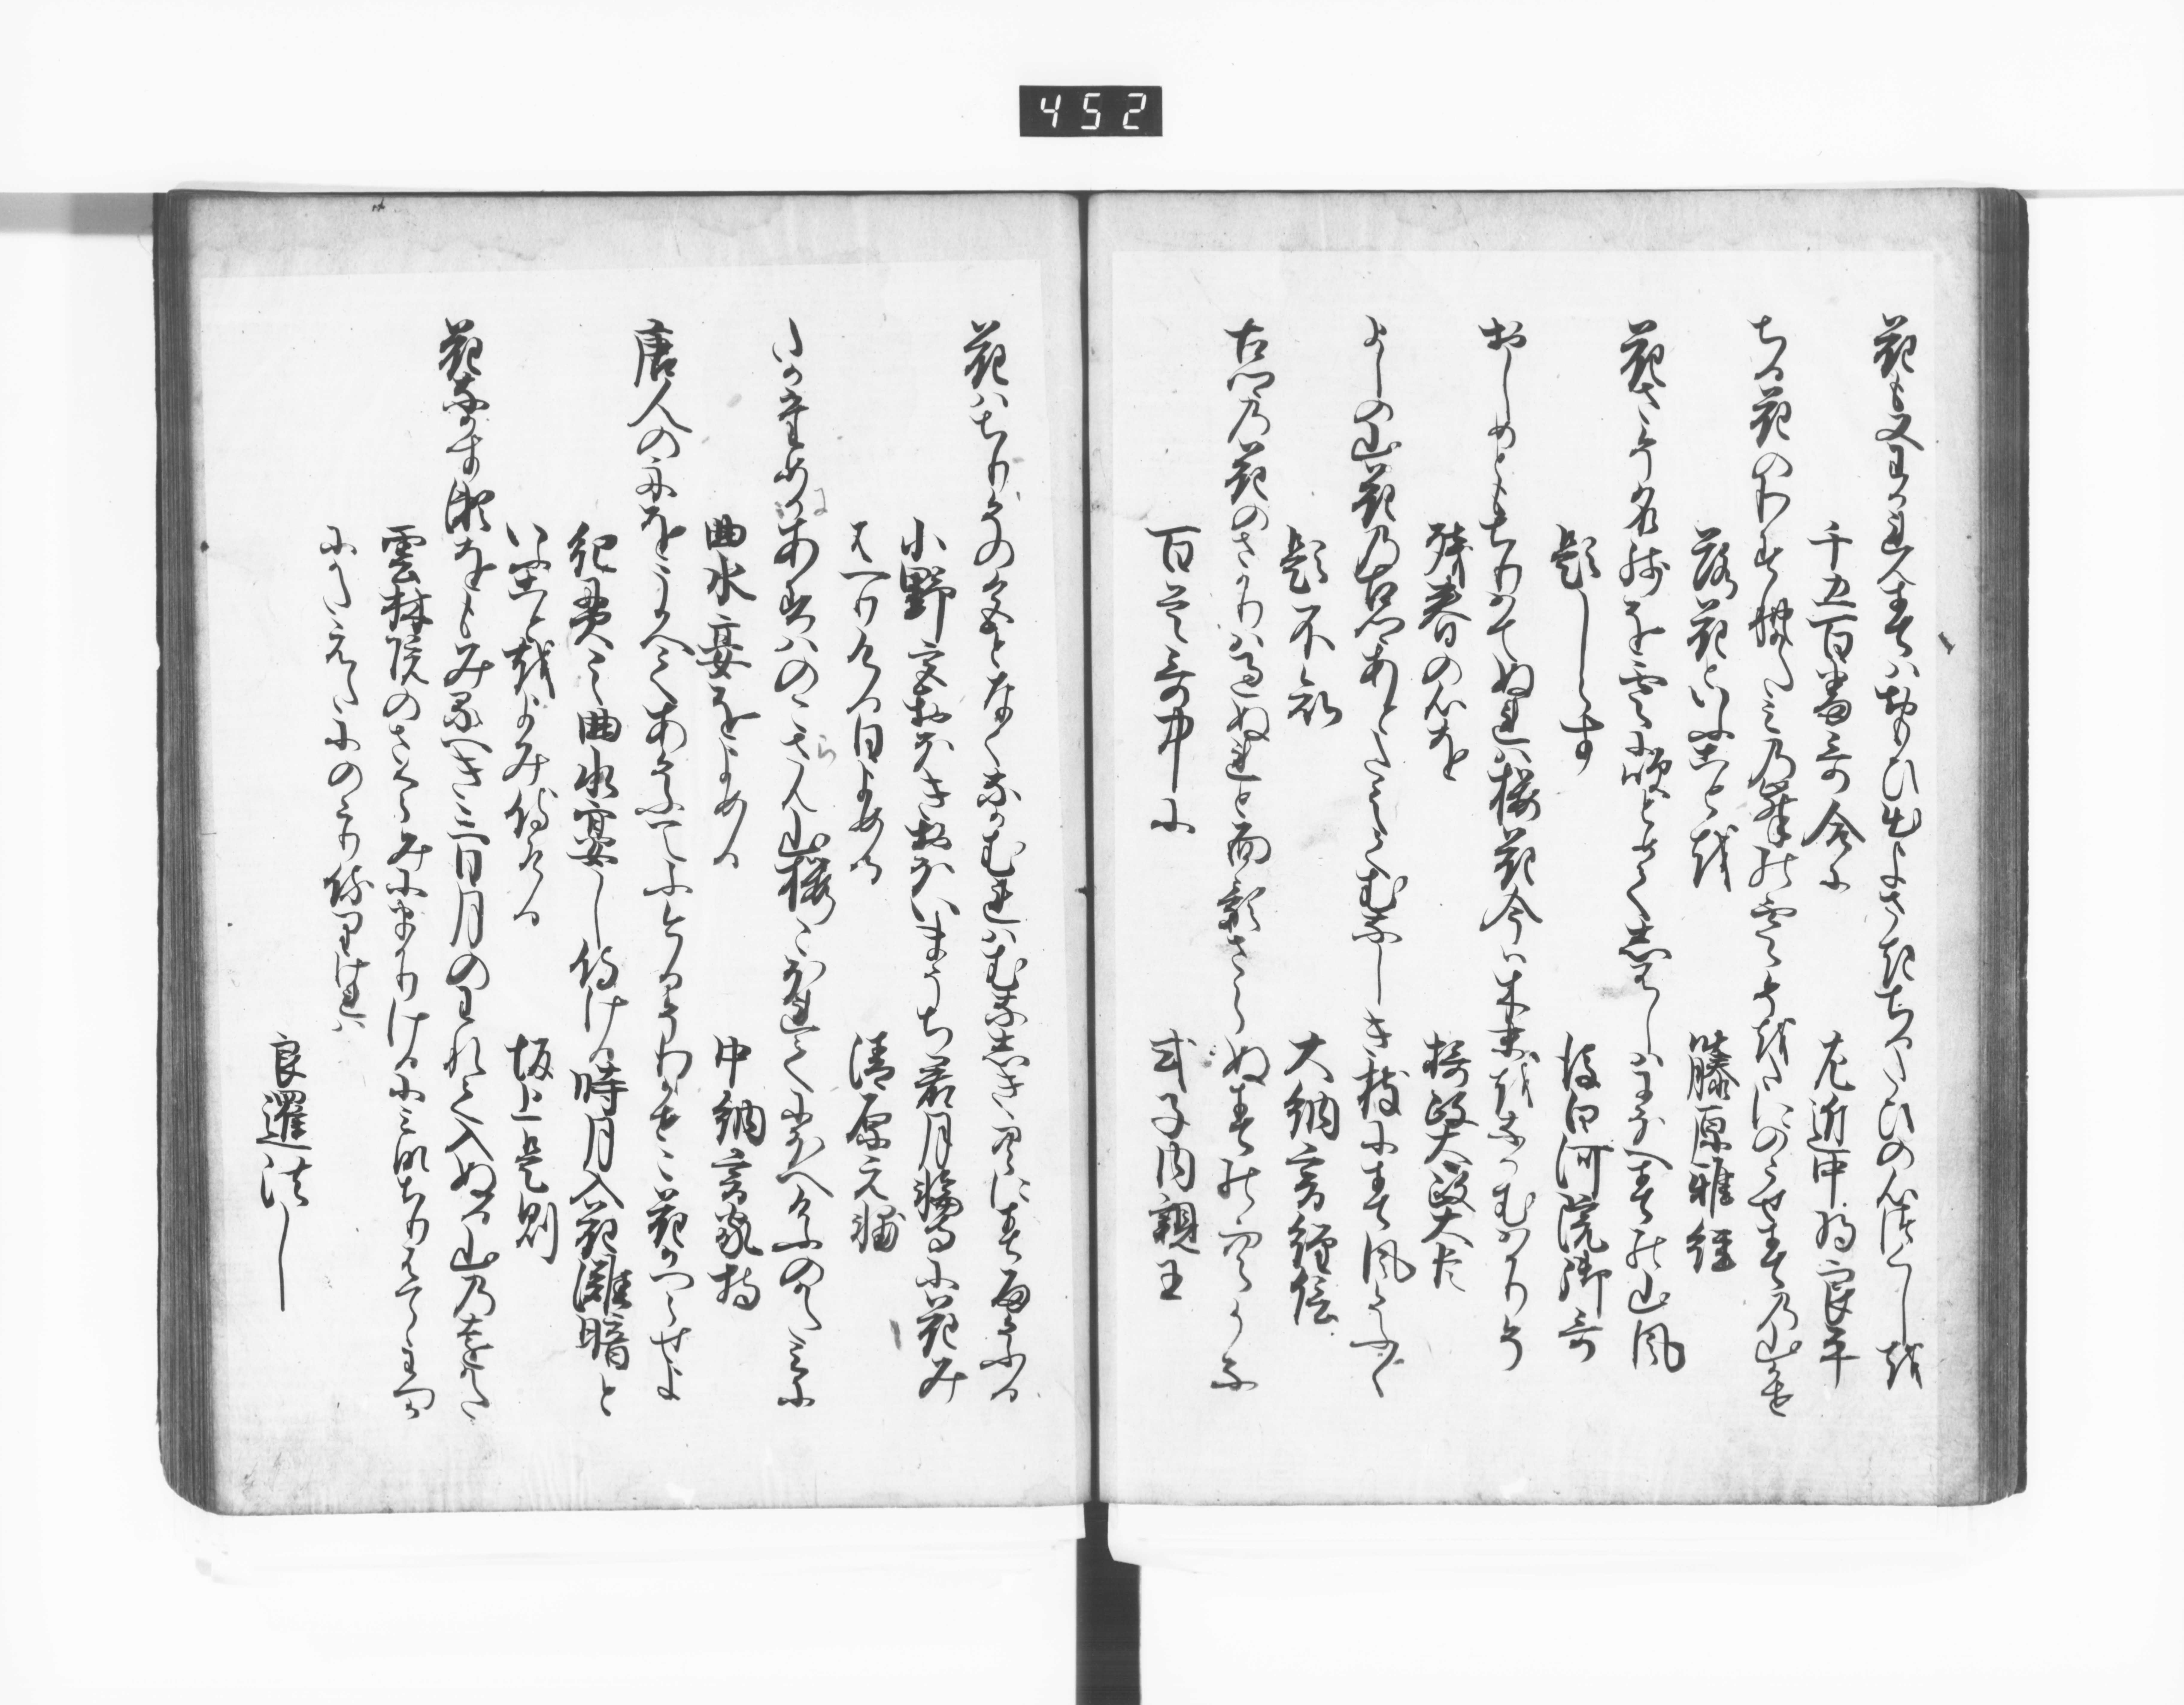 452
花も又わかれん春はおもひ出よさきちるたひの心つくしを
千五百番哥合に　左近中将良平
ちる花のわすれかたみの峯の雲そをたにのこせ春の山かせ
落花といふことを　藤原雅経
花さそふ名残を雲に吹とめてしはしはにほへ春の山風
題しらす　後白河院御哥
おしめともちりはてぬれは桜花今は木末をなかむはかりそ
残春の心を　摂政太政大臣
よしの山花の古郷あとたえてむなしき枝に春風そふく
題不知　大納言経信
古郷の花のさかりは過ぬれと面影さらぬ春の空かな
百首哥中に　式子内親王
花はちりその色となくなかむれはむなしき空に春雨そふる
小野宮おほきおほいまうち君月輪寺に花み
侍ける日よめる　清原元輔
たかためかあすはのこさん山桜こほれてにほへけふのかたみに
曲水宴をよめる　中納言家持
唐人の舟をうかへてあそふてふけふそわかせこ花かつらせよ
紀貫之曲水宴し侍ける時月入花灘暗と
いふことをよみ侍ける　坂上是則
花なかす瀬をもみるへき三日月のわれて入ぬる山のをちかた
雲林院のさくらみにまかりけるにみなちりはてゝわつか
にかたえたにのこり侍りけれは
良暹法し